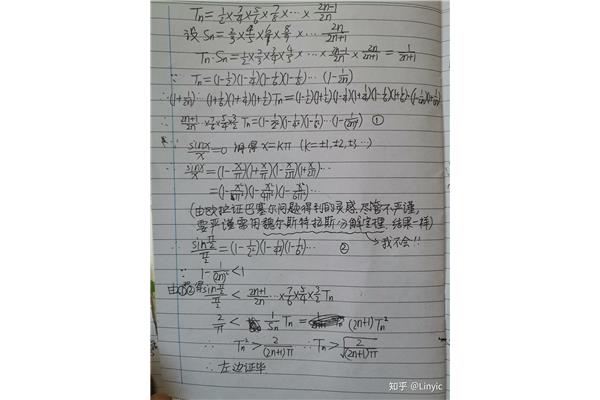 Tn = 1/2 × 3/4 × 5/6 × 7/8 × ⋯ × 2n-1/2n
设 Sn = 2/3 × 4/5 × 6/7 × 8/9 × ⋯ × 2n/2n+1
Tn·Sn = 1/2 × 2/3 × 3/4 × 4/5 × ⋯ × 2n-1/2n × 2n/2n+1 = 1/2n+1
∵ Tn = (1-1/2)(1-1/4)(1-1/6)(1-1/8)⋯(1-1/2n)
∴ (1+1/2n)⋯(1+1/6)(1+1/4)(1+1/2)Tn = (1-1/2)(1+1/2)(1-1/4)(1+1/4)(1-1/6)(1+1/6)⋯(1-1/2n)(1+1/2n)
∴ 2n+1/2n ⋯ × 7/6 × 5/4 × 3/2 Tn = (1-1/2²)(1-1/4²)(1-1/6²)⋯(1-1/(2n)²) ①
sinx/x = 0 解得 x = kπ (k=±1,±2,±3,⋯)
∴ sinx/x = (1-x/π)(1+x/π)(1-x/2π)(1+x/2π)⋯
= (1-x²/π²)(1-x²/4π²)(1-x²/6π²)⋯
(由欧拉证巴塞尔问题得到的灵感.尽管不严谨,
要严谨需用魏尔斯特拉斯分解定理.结果一样)
→我不会!!
∴ sinπ/2 / π/2 = (1-1/2²)(1-1/4²)(1-1/6²)⋯ ②
∵ 1-1/(2n)² < 1
由①②得 sinπ/2 / π/2 < 2n+1/2n ⋯ × 7/6 × 5/4 × 3/2 Tn
2/π < 1/Sn Tn = (2n+1)Tn²
∴ Tn² > 2/(2n+1)π ∴ Tn > √2/(2n+1)π
∴ 左边证毕
知乎 @Linyic